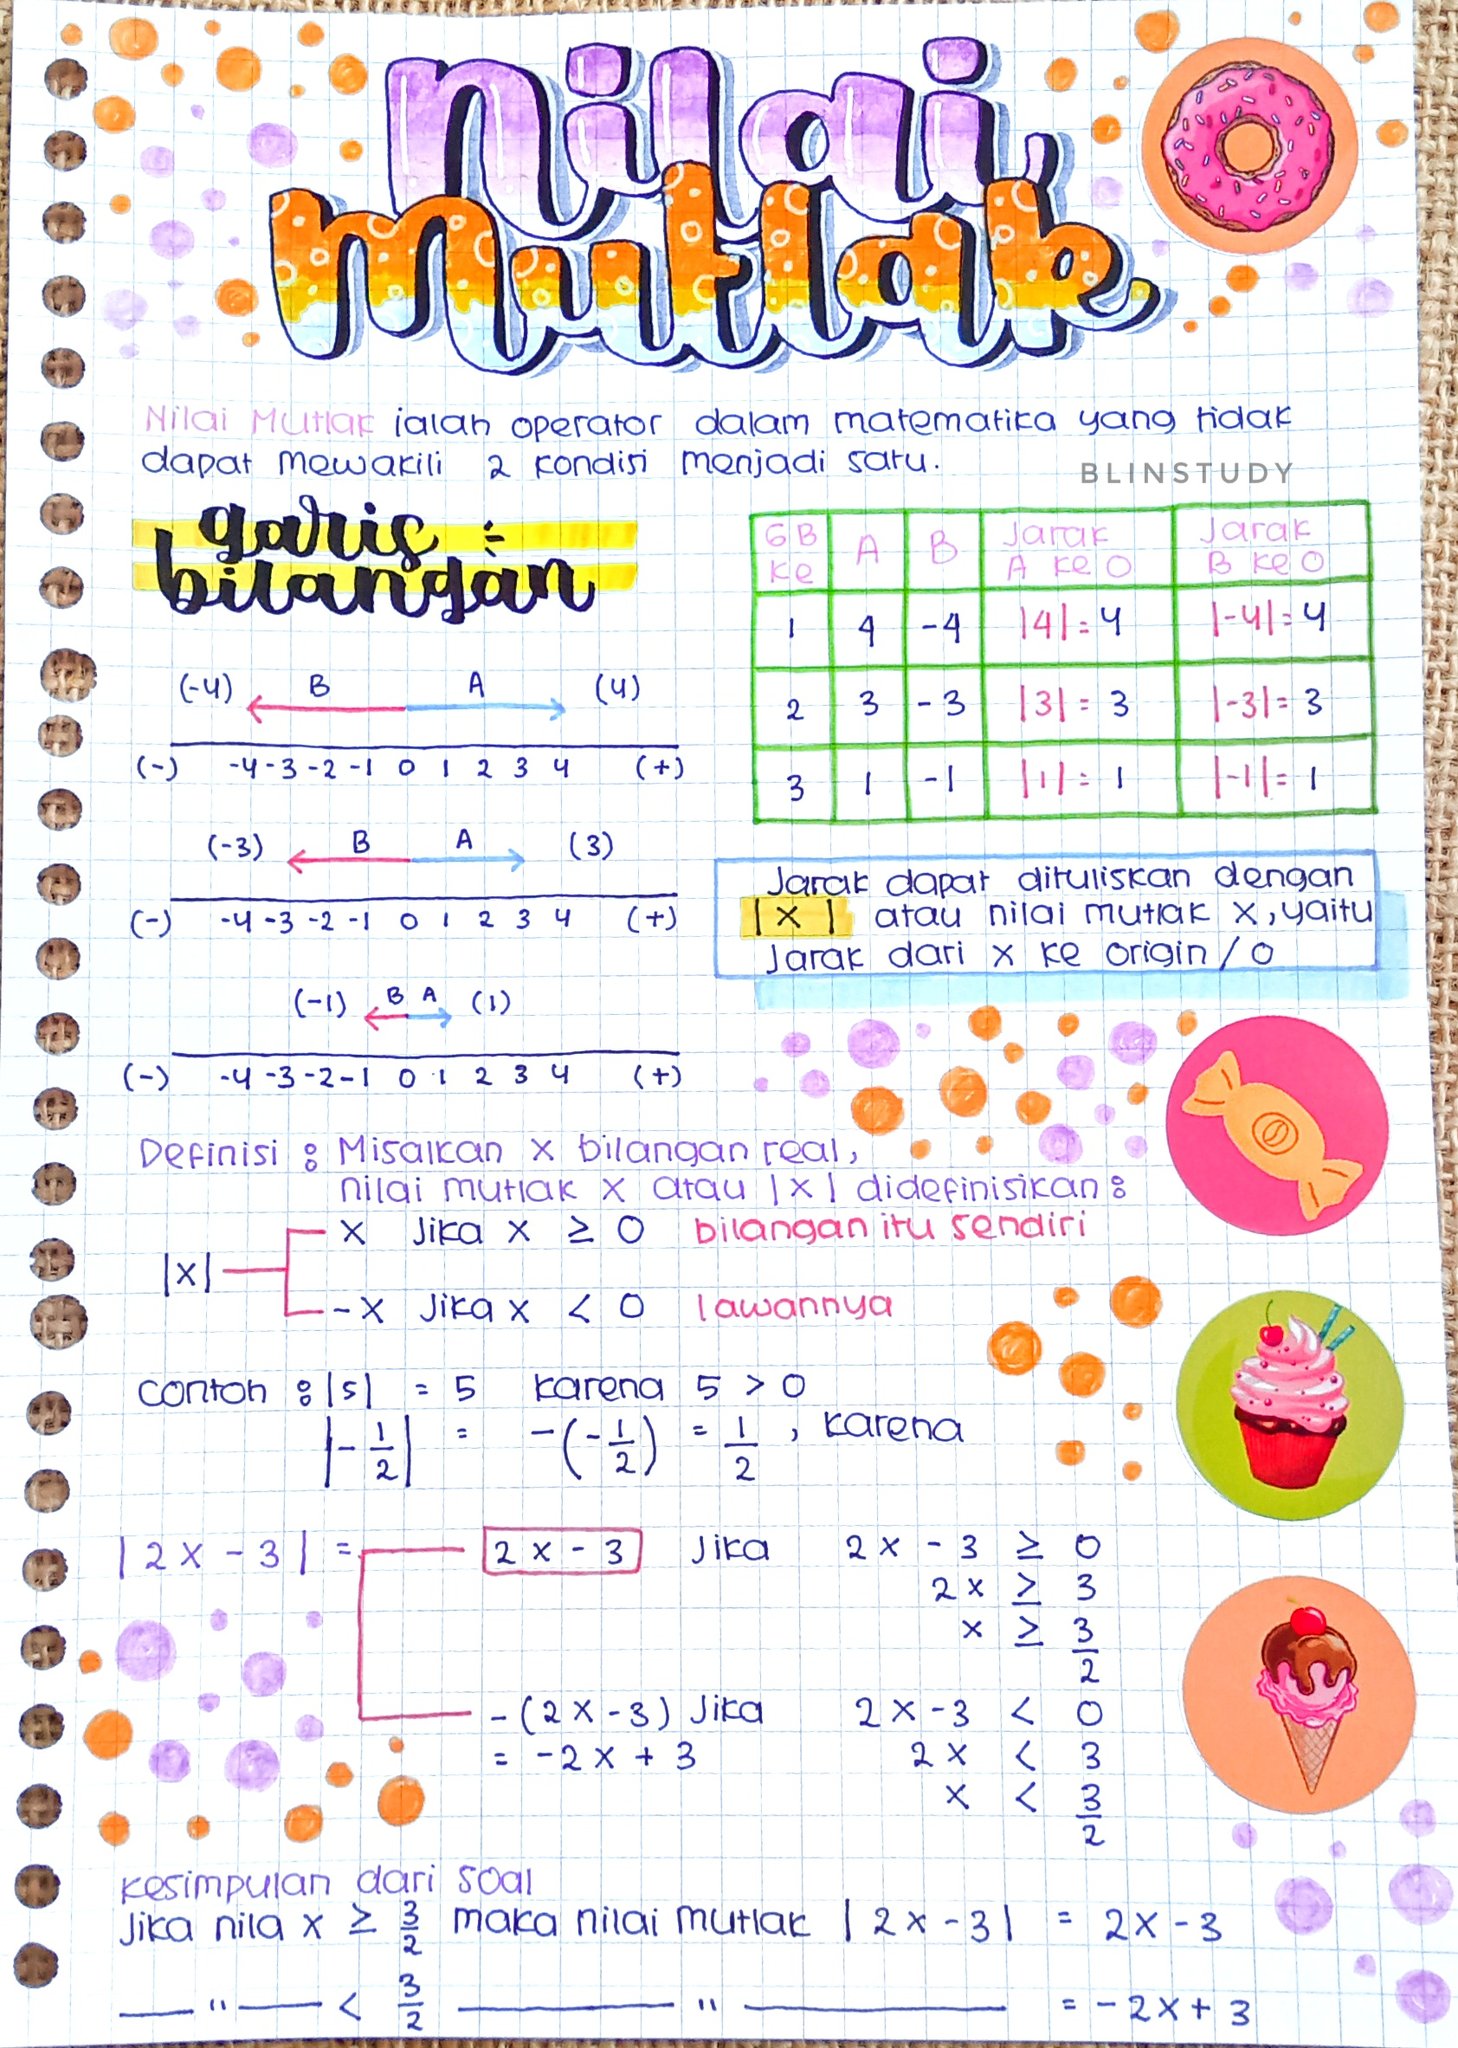 Nilai
Mutlak
Nilai Mutlak ialah operator dalam matematika yang tidak
dapat mewakili 2 kondisi menjadi satu.
BLINSTUDY
garis
bilangan :
(-4) B A (4)
(-) -4 -3 -2 -1 0 1 2 3 4 (+)
(-3) B A (3)
(-) -4 -3 -2 -1 0 1 2 3 4 (+)
(-1) B A (1)
(-) -4 -3 -2 -1 0 1 2 3 4 (+)
GB ke A B Jarak A ke 0 Jarak B ke 0
1 4 -4 |4| = 4 |-4| = 4
2 3 -3 |3| = 3 |-3| = 3
3 1 -1 |1| = 1 |-1| = 1
Jarak dapat dituliskan dengan
|x| atau nilai mutlak x, yaitu
Jarak dari x ke origin / 0
Definisi : Misalkan x bilangan real,
nilai mutlak x atau |x| didefinisikan :
x Jika x ≥ 0 bilangan itu sendiri
|x|
-x Jika x < 0 lawannya
Contoh : |5| = 5 karena 5 > 0
|-1/2| = -(-1/2) = 1/2 , karena
|2x - 3| = 2x - 3 Jika 2x - 3 ≥ 0
2x ≥ 3
x ≥ 3/2
-(2x-3) Jika 2x - 3 < 0
= -2x + 3 2x < 3
x < 3/2
Kesimpulan dari soal
Jika nila x ≥ 3/2 maka nilai mutlak |2x-3| = 2x-3
— " — < 3/2 — " — = -2x+3